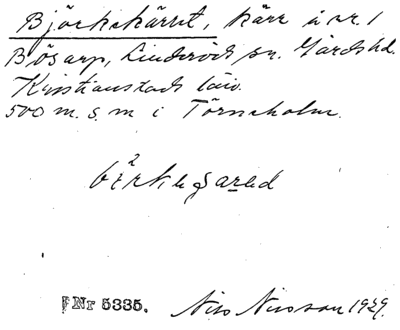 Björkakärret, kärr å nr. 1
Bösarp, Linderöds sn. Gärds hd.
Kristianstads län.
500 m. s. m i Törnaholm.
Nr 5335. Nils Nilsson 1929.